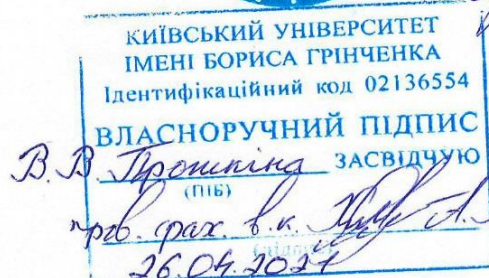 КИЇВСЬКИЙ УНІВЕРСИТЕТ
ІМЕНІ БОРИСА ГРІНЧЕНКА
Ідентифікаційний код 02136554
ВЛАСНОРУЧНИЙ ПІДПИС
В.В. Прошкіна ЗАСВІДЧУЮ
(ПІБ)
пров. фах. в.к.
(підпис)
26.04.2021